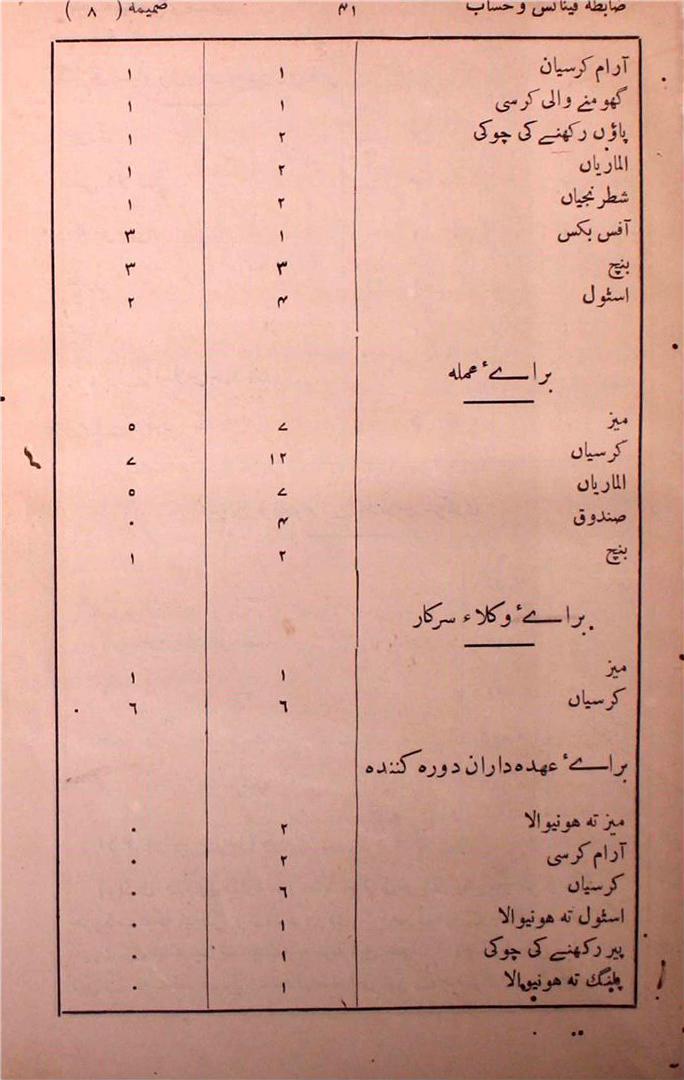 ضابطہ فینانس و حساب ۴۱ ضمیمہ ( ۸ )
آرام کرسیان ۱ ۱
گھومنے والی کرسی ۱ ۱
پاؤں رکھنے کی چوکی ۲ ۱
الماریاں ۲ ۱
شطرنجیاں ۲ ۱
آفس بکس ۱ ۳
بنچ ۳ ۳
اسٹول ۴ ۲
براےٴ عملہ
میز ۷ ۵
کرسیاں ۱۲ ۷
الماریاں ۷ ۵
صندوق ۴ ۰
بنچ ۲ ۱
براےٴ وکلاء سرکار
میز ۱ ۱
کرسیاں ۶ ۶
براےٴ عہدہ داران دورہ کنندہ
میز تہ ہونیوالا ۲ ۰
آرام کرسی ۲ ۰
کرسیاں ۶ ۰
اسٹول تہ ہونیوالا ۱ ۰
پیر رکھنے کی چوکی ۱ ۰
پلنگ تہ ہونیوالا ۱ ۰